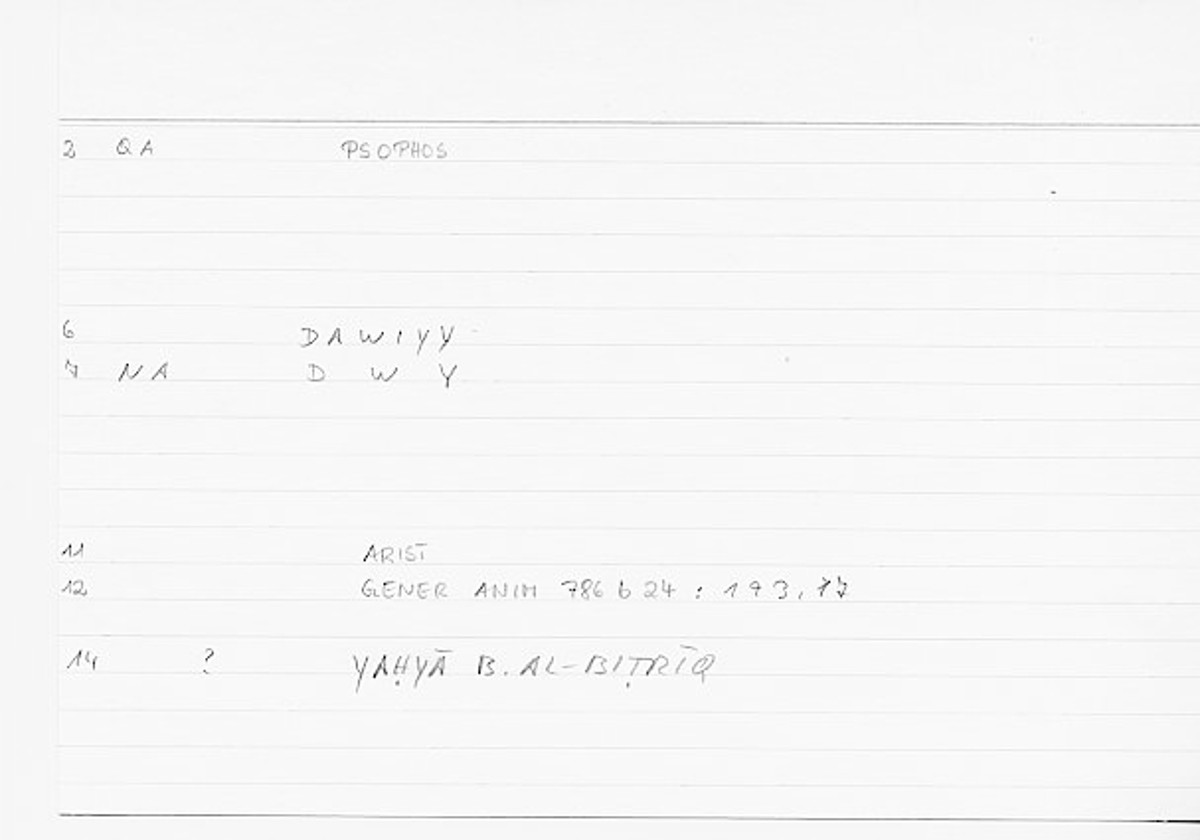 2 QA PSOPHOS
6 DAWIYY
7 NA D W Y
11 ARIST
12 GENER ANIM 786 b 24 : 193,17
14 ? YAḤYĀ B. AL-BIṬRĪQ